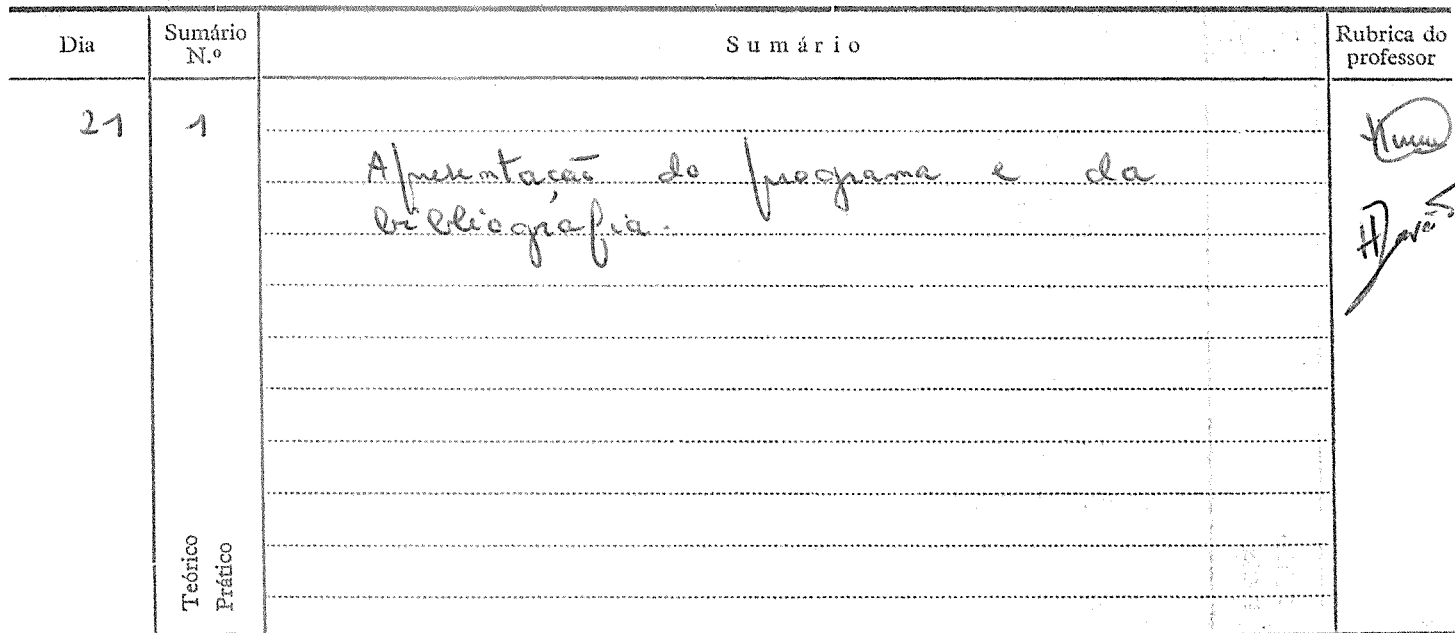 Dia
Sumário
N.º
Sumário
Rubrica do
professor
21
1
Apresentação do programa e da
bibliografia.
Teórico
Prático